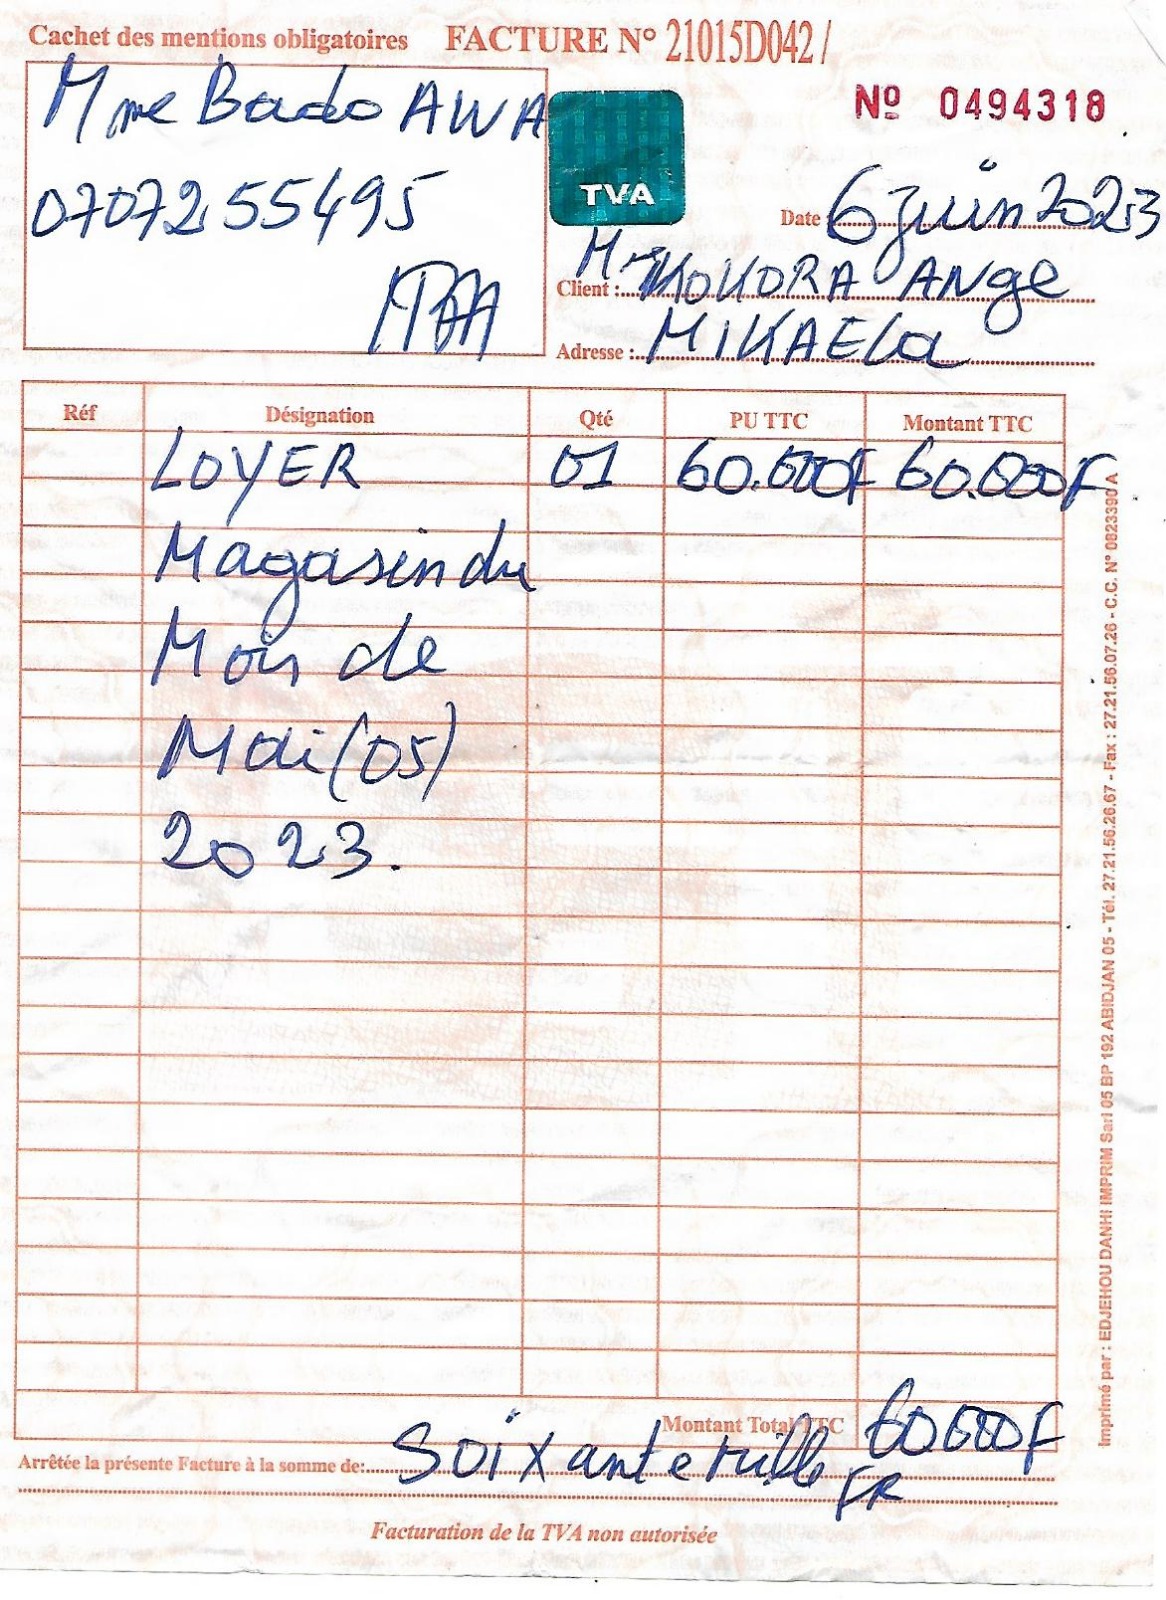 Cachet des mentions obligatoires FACTURE N° 21015D042/
Nº 0494318
Mme Bado AWA
0707255495
TVA
Date 6 juin 2023
Client : KOUORA ANge
Adresse : MIKAELa
Réf Désignation Qté PU TTC Montant TTC
LOYER 01 60.000F 60.000F
Magasin du
Mois de
Mai (05)
2023.
Montant Total TTC 60000F
Arrêtée la présente Facture à la somme de: Soixante mille
FR
Facturation de la TVA non autorisée
Imprimé par : EDJEHOU DANHI IMPRIM Sarl 05 BP 192 ABIDJAN 05 - Tél. 27.21.56.26.67 - Fax : 27.21.56.07.26 - C.C. N° 0823390 A